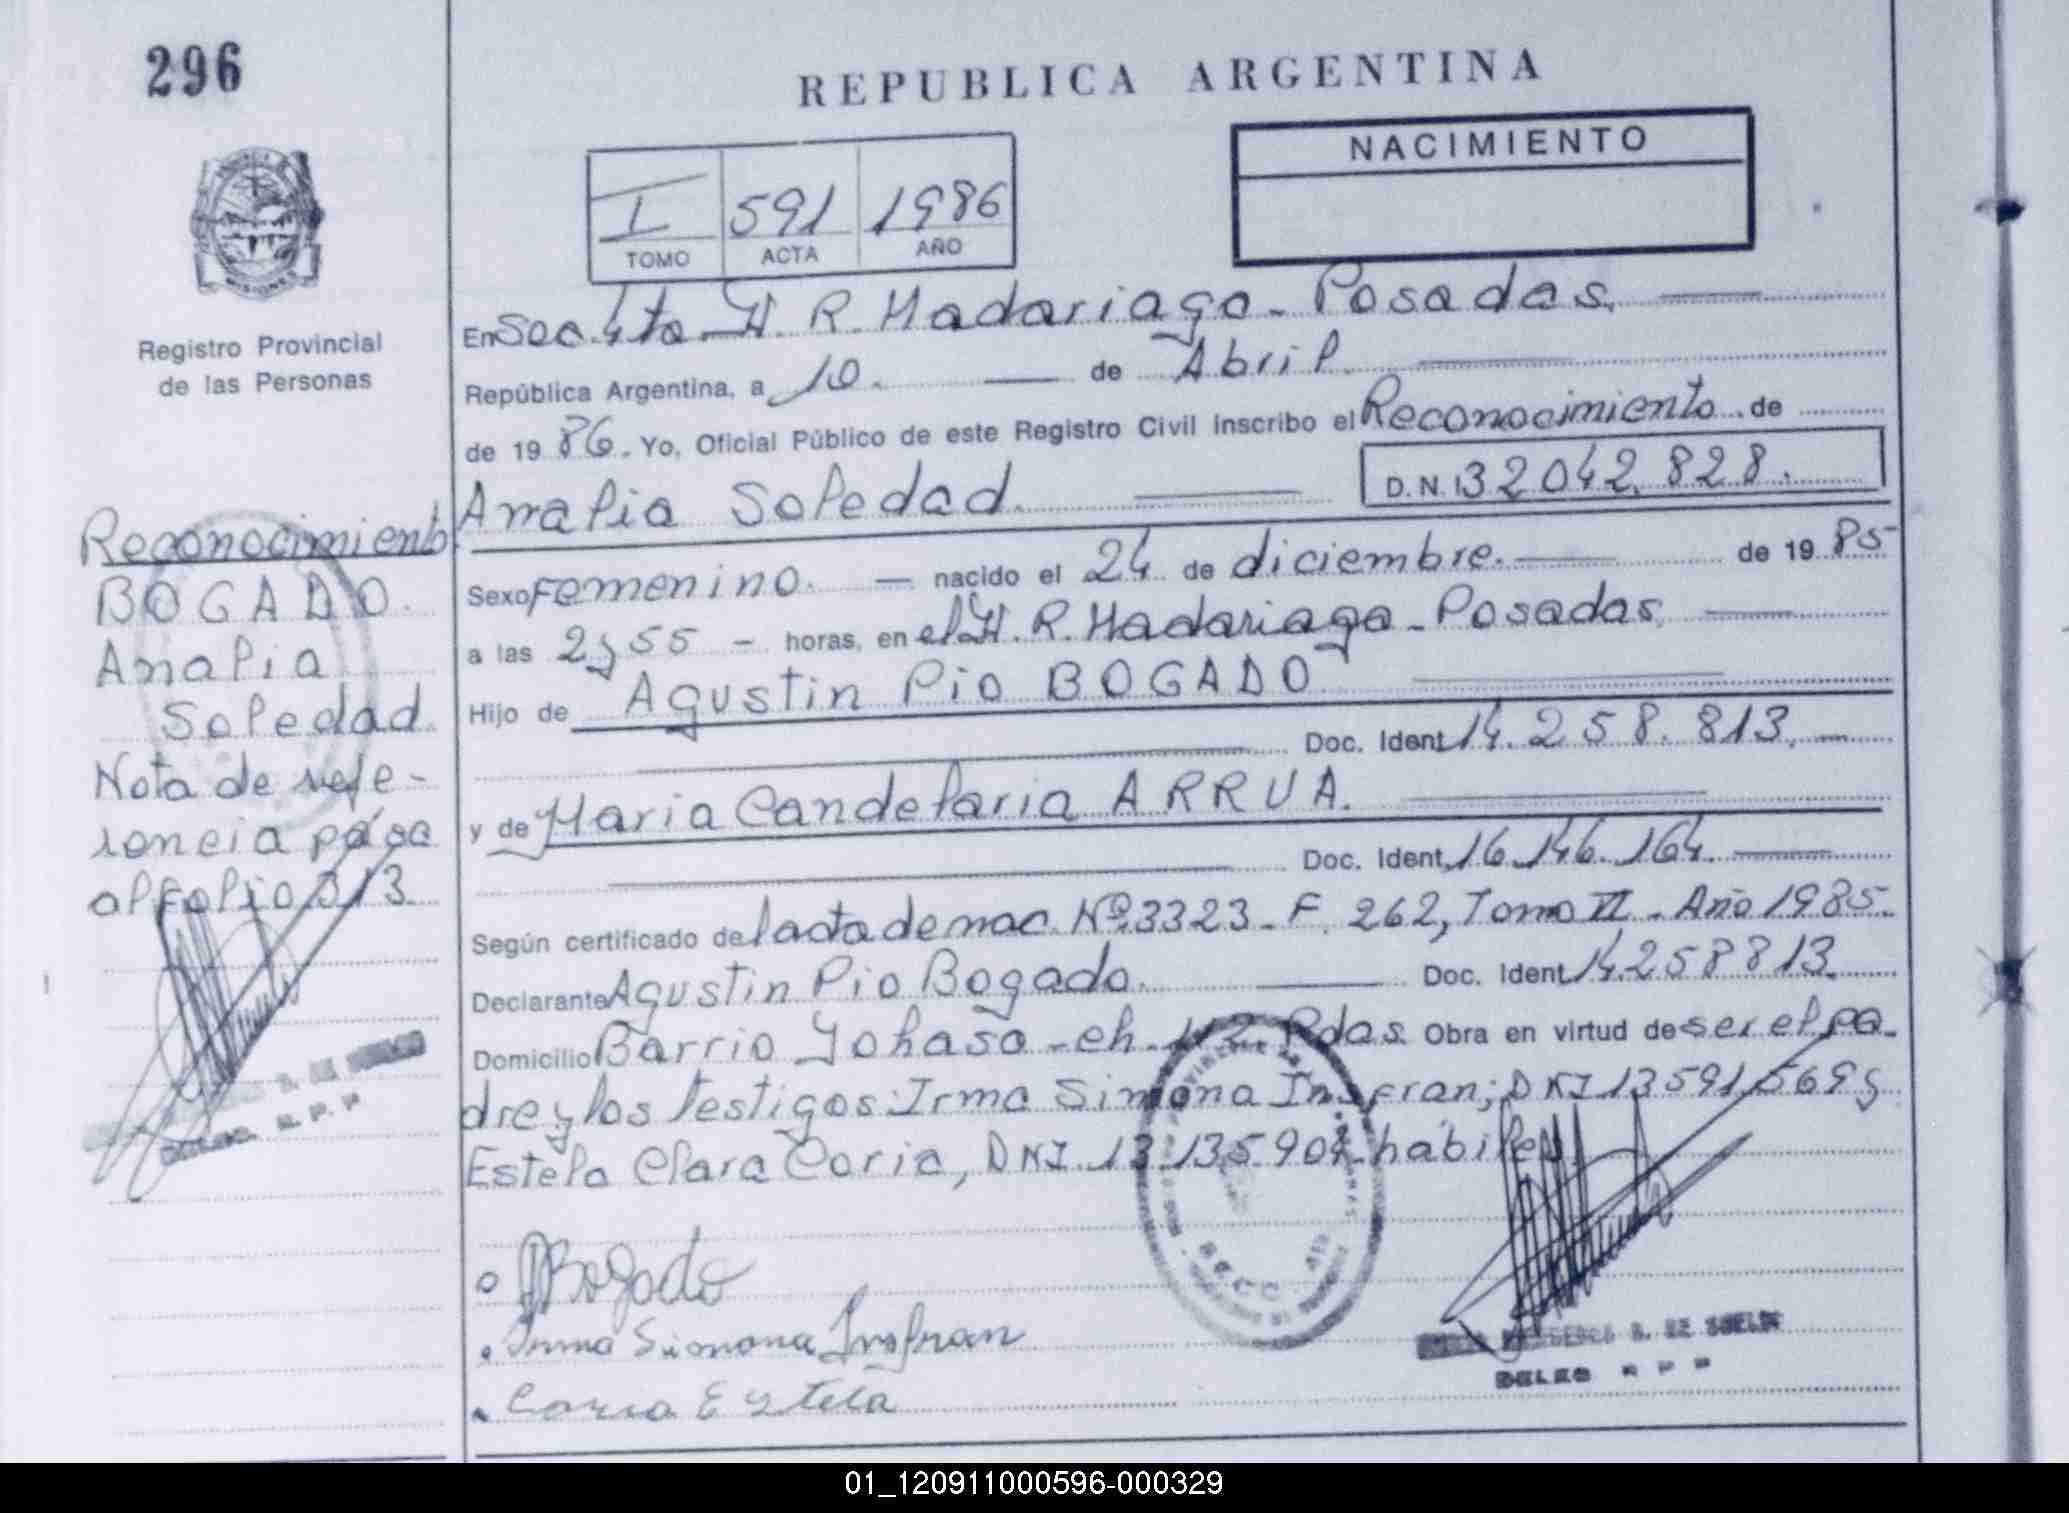 296
REPUBLICA ARGENTINA
NACIMIENTO
I 591 1986
TOMO ACTA AÑO
MISIONES
Registro Provincial
de las Personas
En Sec. 4ta H. R. Madariaga - Posadas.
República Argentina, a 10. de Abril.
de 1986. Yo, Oficial Público de este Registro Civil inscribo el Reconocimiento de
Analia Soledad. D.N.I 32 042 828.
Sexo Femenino. nacido el 24 de diciembre. de 1985
a las 2 y 55 - horas, en el H. R. Madariaga - Posadas
Hijo de Agustin Pio BOGADO
Doc. Ident 14.258.813.
y de Maria Candelaria ARRUA.
Doc. Ident. 16.146.164.
Según certificado de l acta de nac. Nº 3323 - F. 262, Tomo VI - Año 1985.
Declarante Agustin Pio Bogado. Doc. Ident 14.258813.
Domicilio Barrio Yohasa - ch. 112 Pdas. Obra en virtud de ser el pa-
dre y los testigos: Irma Simona Insfran; DNI 13591569 y
Estela Clara Coria, DNI. 13.135.904 - hábiles.
Reconocimiento
BOGADO.
Analia
Soledad.
Nota de refe-
rencia pasa
al Folio 313.
DELEG R. P. P
Bogado
Irma Simona Insfran
Coria Estela
DELEG R P P
01_120911000596-000329